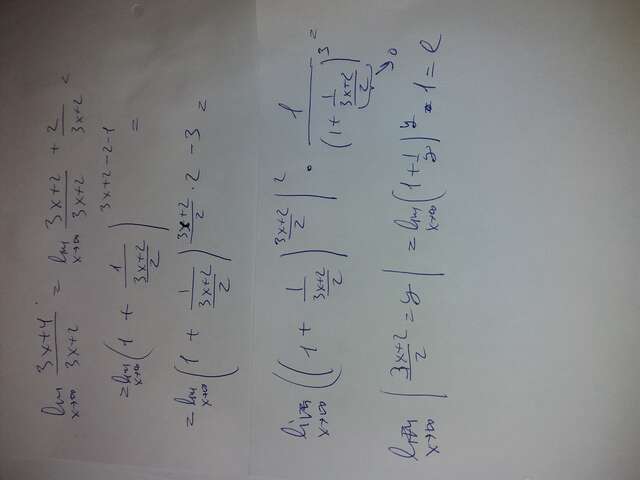 lim x→∞ (3x+4)/(3x+2) = lim x→∞ (3x+2)/(3x+2) + 2/(3x+2) =
= lim x→∞ (1 + 1/((3x+2)/2))^(3x+2-2-1) =
= lim x→∞ (1 + 1/((3x+2)/2))^((3x+2)/2 · 2 - 3) =
lim x→∞ ((1 + 1/((3x+2)/2))^((3x+2)/2))^2 · 1/(1 + 1/((3x+2)/2))^3 = → 0
lim x→∞ | (3x+2)/2 = y | = lim x→∞ (1 + 1/y)^y · 1 = e